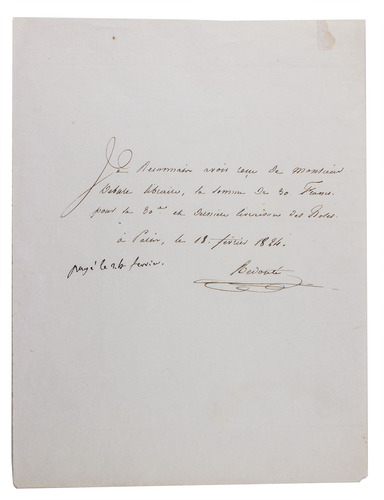 Je Reconnais avoir reçu de Monsieur
Debure libraire, la somme de 30 Francs.
pour la 30me et derniere livraison des Roses.
à Paris, le 18. février 1824.
payé le 26 fevrier.
Redouté